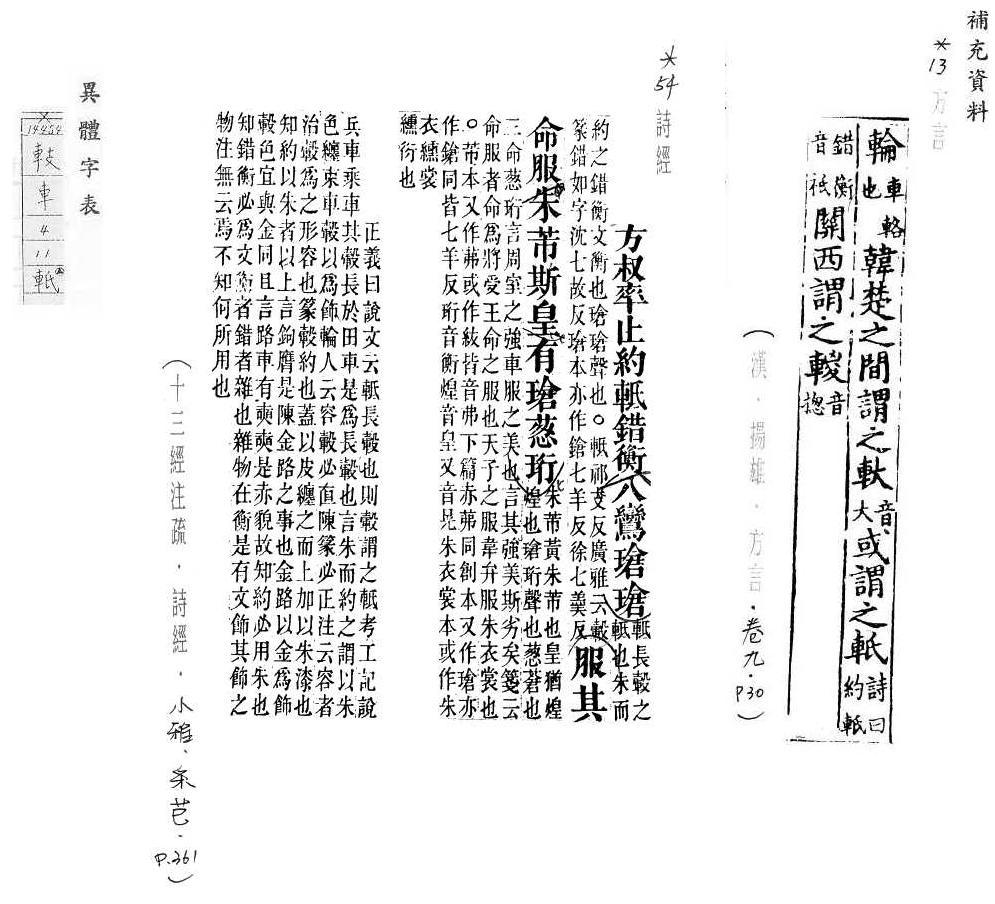 補充資料
*13 方言
輪車輅也韓楚之間謂之軑音大或謂之軝詩曰約軝
錯衡音祇關西謂之𨍏音總
(漢．揚雄．方言．卷九．P.30)
*54 詩經
方叔率止約軝錯衡八鸞瑲瑲軝長轂之軝也朱而
約之錯衡文衡也瑲瑲聲也○軝祁支反廣雅云轂
篆錯如字沈七故反瑲本亦作鎗七羊反徐七羹反服其
命服朱芾斯皇有瑲葱珩朱芾黃朱芾也皇猶煌煌也瑲珩聲也葱蒼也
三命葱珩言周室之強車服之美也言其強美斯劣矣箋云
命服者命為將受王命之服也天子之服韋弁服朱衣裳也
○芾本又作茀或作紱皆音弗下篇赤茀同創本又作瑲亦
作鎗同皆七羊反珩音衡煌音皇又音晃朱衣裳本或作朱
衣纁裳
纁衍也
正義曰說文云軝長轂也則轂謂之軝考工記說
兵車乘車其轂長於田車是為長轂也言朱而約之謂以朱
色纏束車轂以為飾輪人云容轂必直陳篆必正注云容者
治轂為之形容也篆轂約也蓋以皮纏之而上加以朱漆也
知約以朱者以上言鉤膺是陳金路之事也金路以金為飾
轂色宜與金同且言路車有奭奭是赤貌故知約必用朱也
知錯衡必為文衡者錯者雜也雜物在衡是有文飾其飾之
物注無云焉不知何所用也
(十三經注疏．詩經．小雅．采芑．P.361)
異體字表
14454
車
4
11
軝